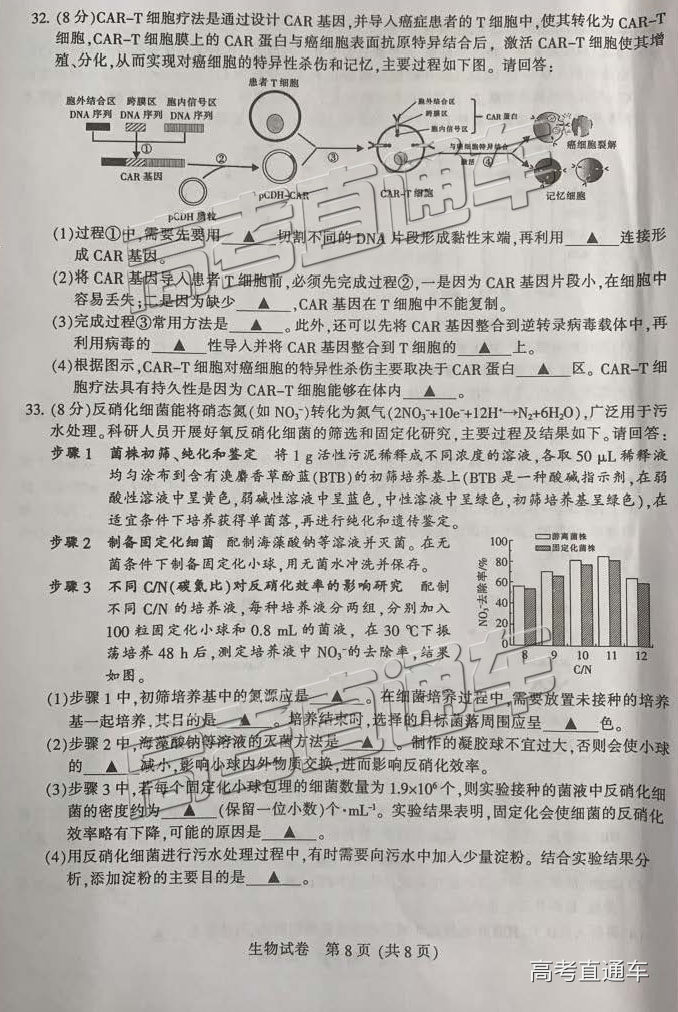 32. (8分)CAR-T细胞疗法是通过设计CAR基因,并导入癌症患者的T细胞中,使其转化为CAR-T
细胞,CAR-T细胞膜上的CAR蛋白与癌细胞表面抗原特异结合后，激活CAR-T细胞使其增
殖、分化,从而实现对癌细胞的特异性杀伤和记忆,主要过程如下图。请回答:
患者T细胞
胞外结合区 跨膜区 胞内信号区
DNA序列 DNA序列 DNA序列
①
CAR基因
②
pCDH质粒
pCDH-CAR
③
胞外结合区
跨膜区
胞内信号区
CAR蛋白
CAR-T细胞
与癌细胞特异结合
激活
④
癌细胞裂解
记忆细胞
(1)过程①中,需要先要用 ▲ 切割不同的DNA片段形成黏性末端,再利用 ▲ 连接形
成CAR基因。
(2)将CAR基因导入患者T细胞前,必须先完成过程②,一是因为CAR基因片段小,在细胞中
容易丢失;二是因为缺少 ▲ ,CAR基因在T细胞中不能复制。
(3)完成过程③常用方法是 ▲ 。此外,还可以先将CAR基因整合到逆转录病毒载体中,再
利用病毒的 ▲ 性导入并将CAR基因整合到T细胞的 ▲ 上。
(4)根据图示,CAR-T细胞对癌细胞的特异性杀伤主要取决于CAR蛋白 ▲ 区。CAR-T细
胞疗法具有持久性是因为CAR-T细胞能够在体内 ▲ 。
33. (8分)反硝化细菌能将硝态氮(如NO₃⁻)转化为氮气(2NO₃⁻+10e⁻+12H⁺→N₂+6H₂O),广泛用于污
水处理。科研人员开展好氧反硝化细菌的筛选和固定化研究,主要过程及结果如下。请回答:
步骤1 菌株初筛、纯化和鉴定 将1 g活性污泥稀释成不同浓度的溶液,各取50 μL稀释液
均匀涂布到含有溴麝香草酚蓝(BTB)的初筛培养基上(BTB是一种酸碱指示剂,在弱
酸性溶液中呈黄色,弱碱性溶液中呈蓝色,中性溶液中呈绿色,初筛培养基呈绿色),在
适宜条件下培养获得单菌落,再进行纯化和遗传鉴定。
步骤2 制备固定化细菌 配制海藻酸钠等溶液并灭菌。在无
菌条件下制备固定化小球,用无菌水冲洗并保存。
步骤3 不同C/N(碳氮比)对反硝化效率的影响研究 配制
不同C/N的培养液,每种培养液分两组,分别加入
100粒固定化小球和0.8 mL的菌液，在30 ℃下振
荡培养48 h后,测定培养液中NO₃⁻的去除率,结果
如图。
NO₃⁻去除率/%
100
80
60
40
20
0
游离菌株
固定化菌株
8 9 10 11 12
C/N
(1)步骤1中,初筛培养基中的氮源应是 ▲ 。在细菌培养过程中,需要放置未接种的培养
基一起培养,其目的是 ▲ 。培养结束时,选择的目标菌落周围应呈 ▲ 色。
(2)步骤2中,海藻酸钠等溶液的灭菌方法是 ▲ 。制作的凝胶球不宜过大,否则会使小球
的 ▲ 减小,影响小球内外物质交换,进而影响反硝化效率。
(3)步骤3中,若每个固定化小球包埋的细菌数量为1.9×10⁶个,则实验接种的菌液中反硝化细
菌的密度约为 ▲ (保留一位小数)个·mL⁻¹。实验结果表明,固定化会使细菌的反硝化
效率略有下降,可能的原因是 ▲ 。
(4)用反硝化细菌进行污水处理过程中,有时需要向污水中加入少量淀粉。结合实验结果分
析,添加淀粉的主要目的是 ▲ 。
生物试卷 第8页(共8页)
高考直通车
高考直通车
高考直通车